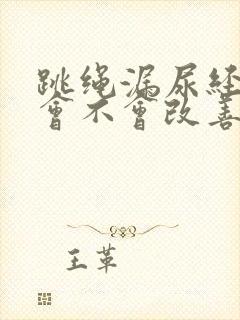 跳绳漏尿经
會不會改善
王革